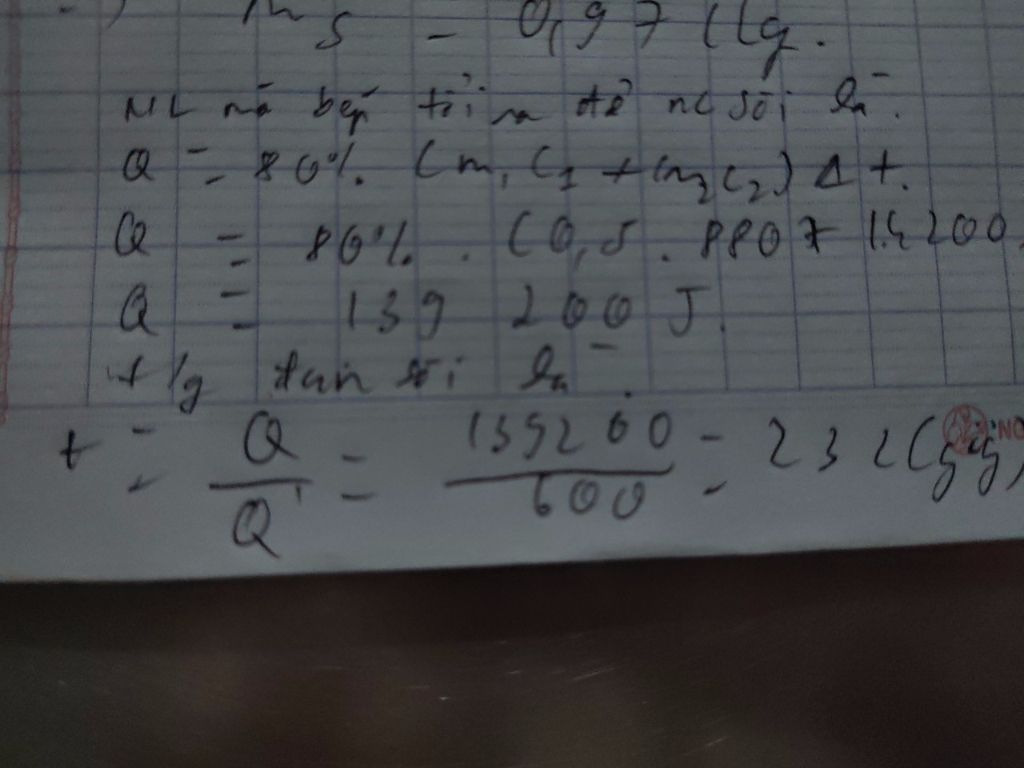 m5 = 0,97 kg.
NL mà bếp tỏi ra để nc sôi là.
Q = 80% (m1 C1 + m2 C2) Δt.
Q = 80% . (0,5 . 880 + 1.4200
Q = 139 200 J.
t/g đun sôi là.
t = Q / Q' = 139200 / 600 = 232 (giây)
NO